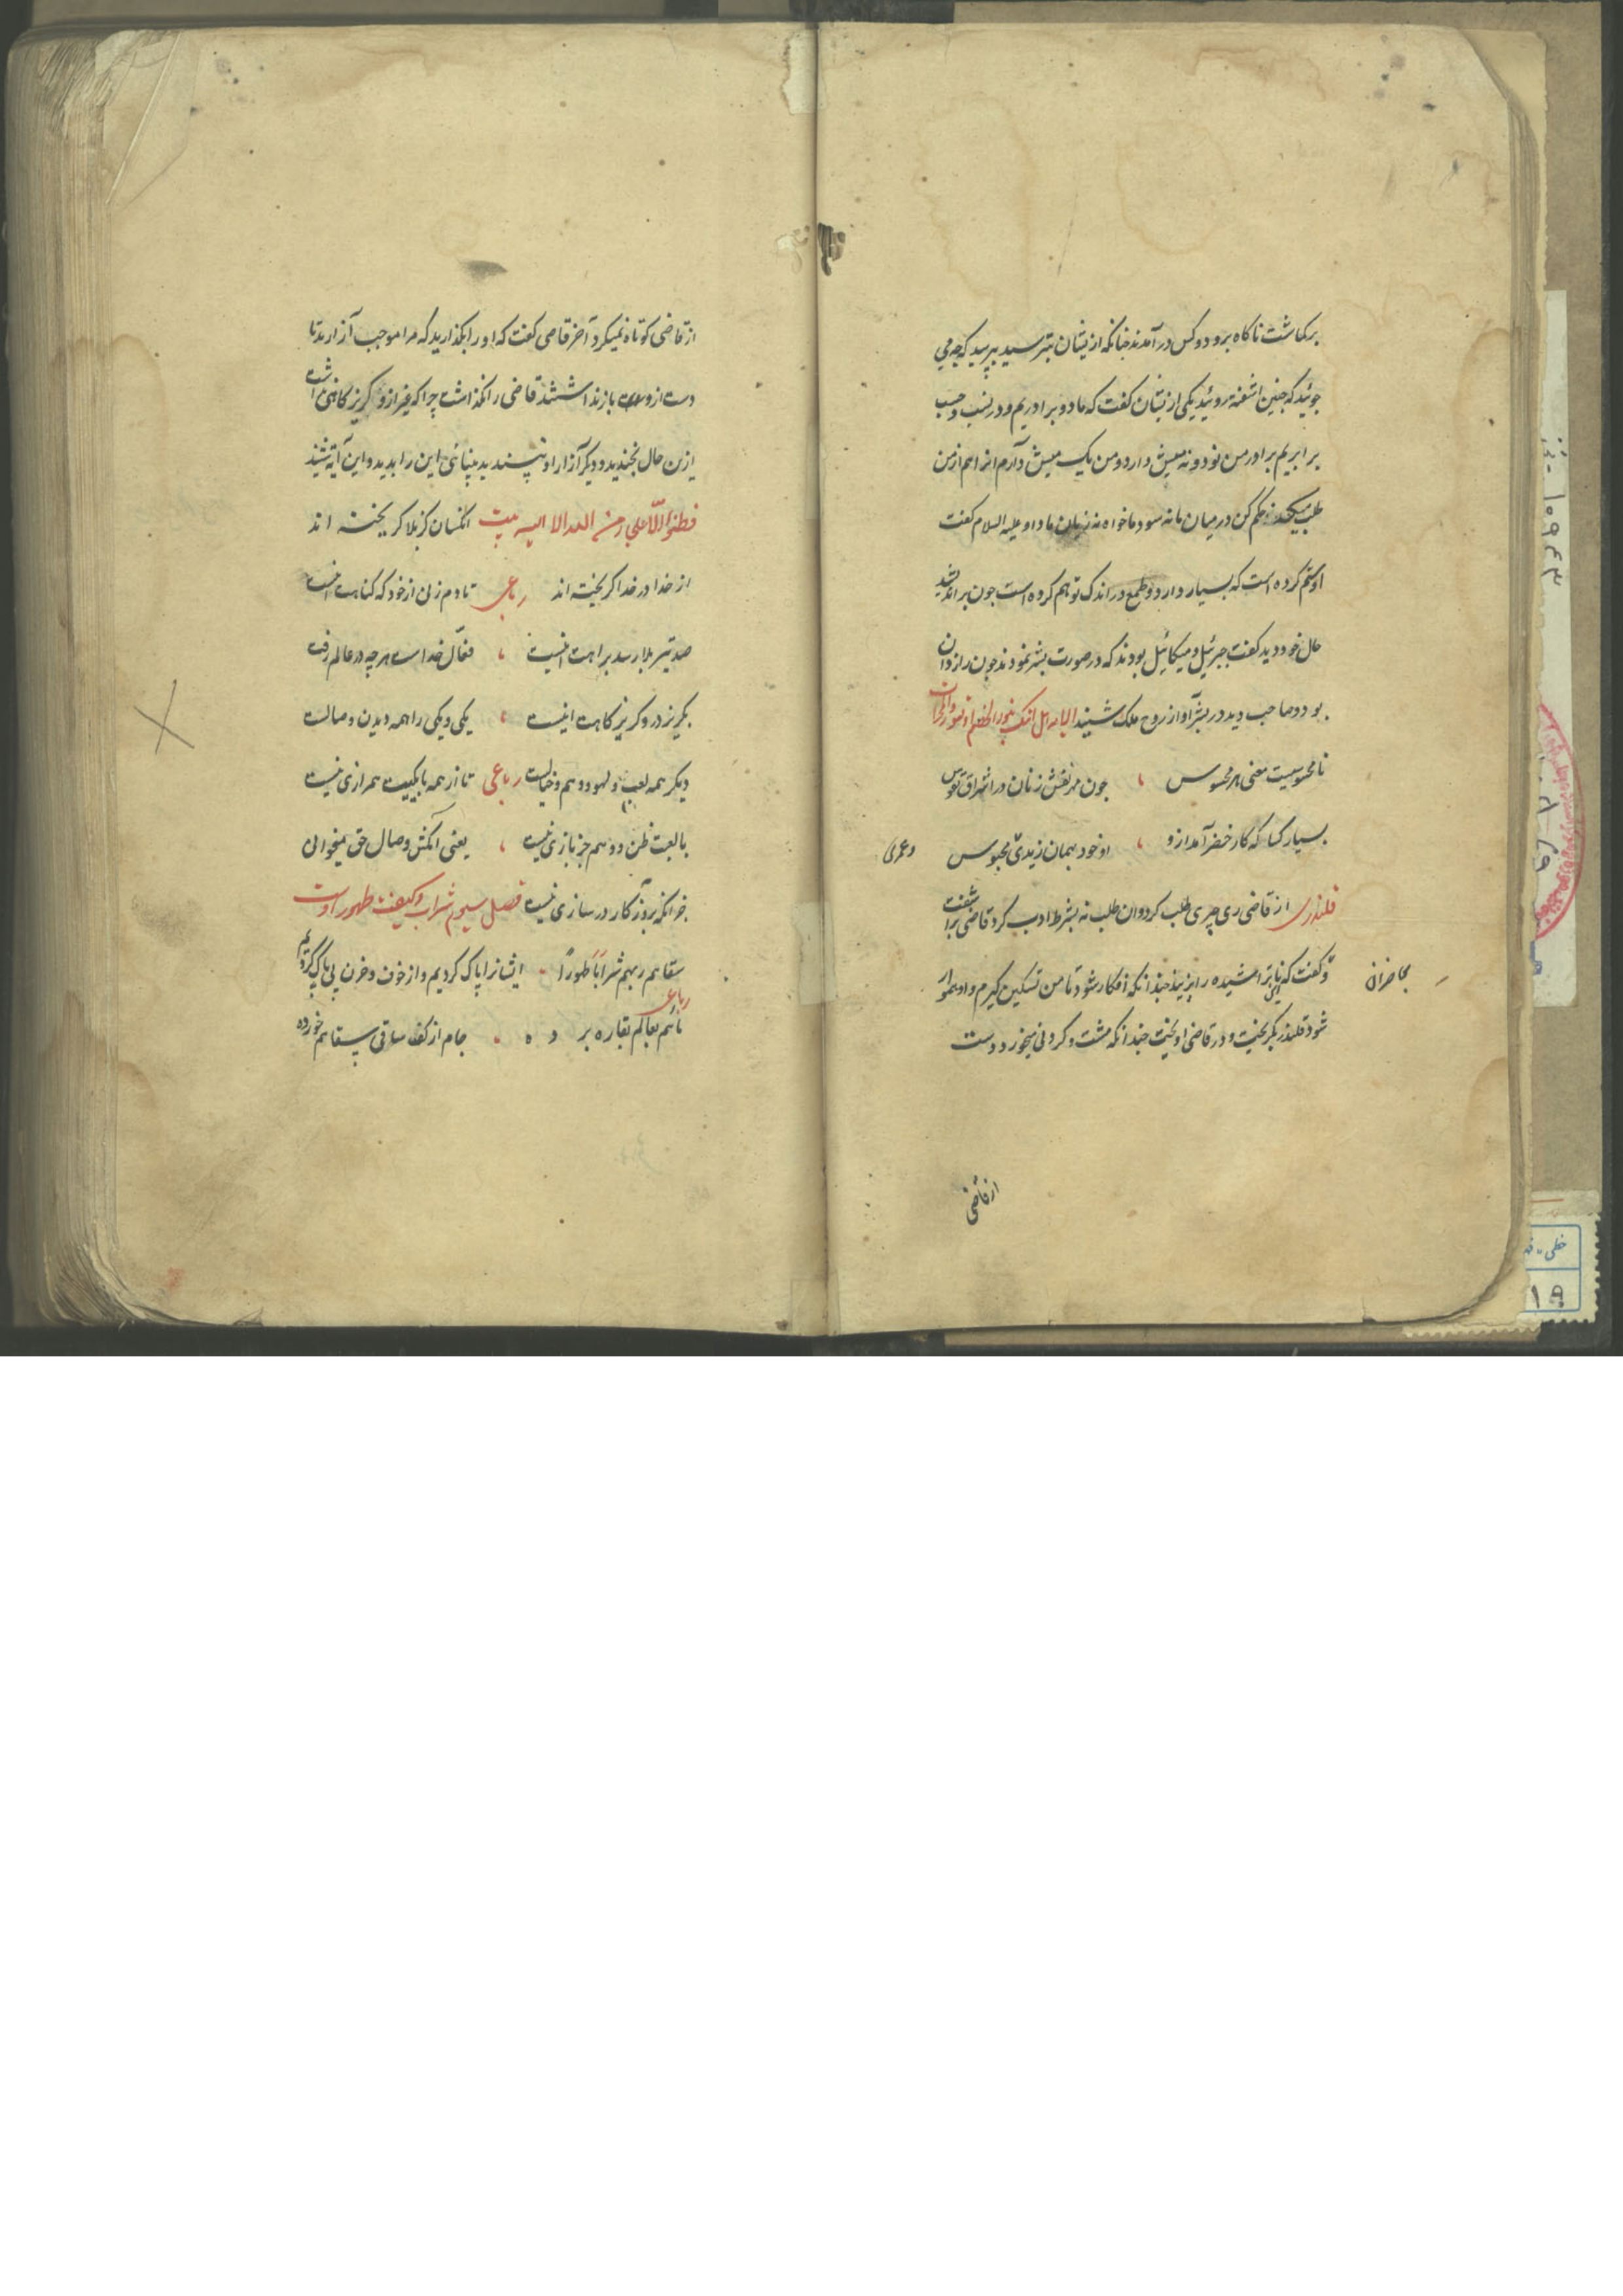 برکماشت ناکاه برو دو کس در آمدند جنانکه از یشان بترسید بپرسید که چه می
جوئید که جنین اشفته روئید یکی از یشان کفت که ما دو برادریم و در نسب و حسب
برابریم برادر من نود و نه میش دارد و من یک میش دارم انرا هم از من
طلب میکند حکم کن در میان ما نه سود ما خواه نه زیان ما داود علیه السلام کفت
او ستم کرده است که بسیار دارد و طمع در اندک تو هم کرده است جون براندیشید
حال خود دید کفت جبرئیل و میکائیل بودند که در صورت بشر نمودند جون رازدان
بود و صاحب دید در بشر آواز روح ملک شنید
نامحسوسیت معنی هر محسوس ، جون مهر نقش زنان در اشراق نفوس
بسیار کسا که کار خضر آمد ازو ، او خود بهمان زیدی محبوس
وعمری
قلندری از قاضی ری چیزی طلب کرد وان طلب نه بشرط ادب کرد قاضی براشفت
و کفت که این ناتراشیده را بزنید جندانکه افکار شود تا من تسکین کیرم و او هموار
بحاضران
شود قلندر بکریخت و در قاضی اویخت جندانکه مشت و کردنی میخورد دست
از قاضی
از قاضی کوتاه نمیکرد آخر قاضی کفت که او را بکذارید که مرا موجب آزارید تا
دست ازو باز نداشتند قاضی را نکذاشت چرا که غیر ازو کریزکاهی نداشت
ازین حال بخندید و دیکر آزار او نپسندید بینائی این را بدید و این آیه شنید
بیت انکسان کز بلا کریخته اند
از خدا در خدا کریخته اند رباعی تا دم زنی از خود که کناهت اینست
صد تیر بلا رسد براهت اینست ، فعّال خداست هر چه در عالم رفت
بکریز درو کریزکاهت اینست ، یکی و یکی را همه دیدن و صالست
دیکر همه لعب و لهو و وهم و خیالست رباعی تا از همه با یکییت همرازی نیست
با لعبت ظن و وهم جز بازی نیست ، یعنی آنکش وصال حق میخوانی
جز انکه بروز کار در سازی نیست فصل سیوم شراب و کیفیت طهور اوست
سقاهم ربهم شراباً طهوراً ۰ ایشانرا پاک کردیم و از خوف و حزن بی باک کردیم
رباعی
مائیم بعالم بقا ره بر د ه ۰ جام از کف ساقی سقاهم خورده